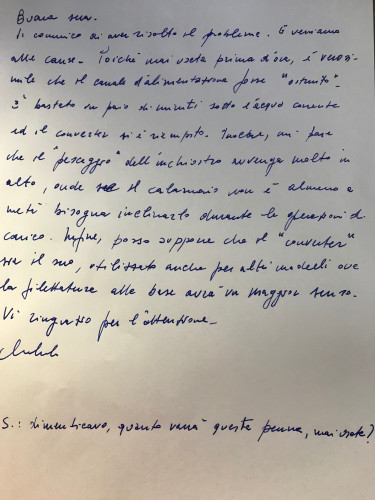 Buona sera.
Vi comunico di aver risolto il problema. E veniamo
alle cause. Poiché mai usata prima d'ora, è verosi-
mile che il canale d'alimentazione fosse "ostruito".
E' bastato un paio di minuti sotto l'acqua corrente
ed il converter si è riempito. Inoltre, mi pare
che il "pescaggio" dell'inchiostro avvenga molto in
alto, onde se il calamaio non è almeno a
metà bisogna inclinarlo durante le operazioni di
carico. Infine, posso supporre che il "converter"
sia il suo, utilizzato anche per altri modelli ove
la filettatura alla base avrà un maggior senso.
Vi ringrazio per l'attenzione.
S.: dimenticavo, quanto varrà questa penna, mai usata?